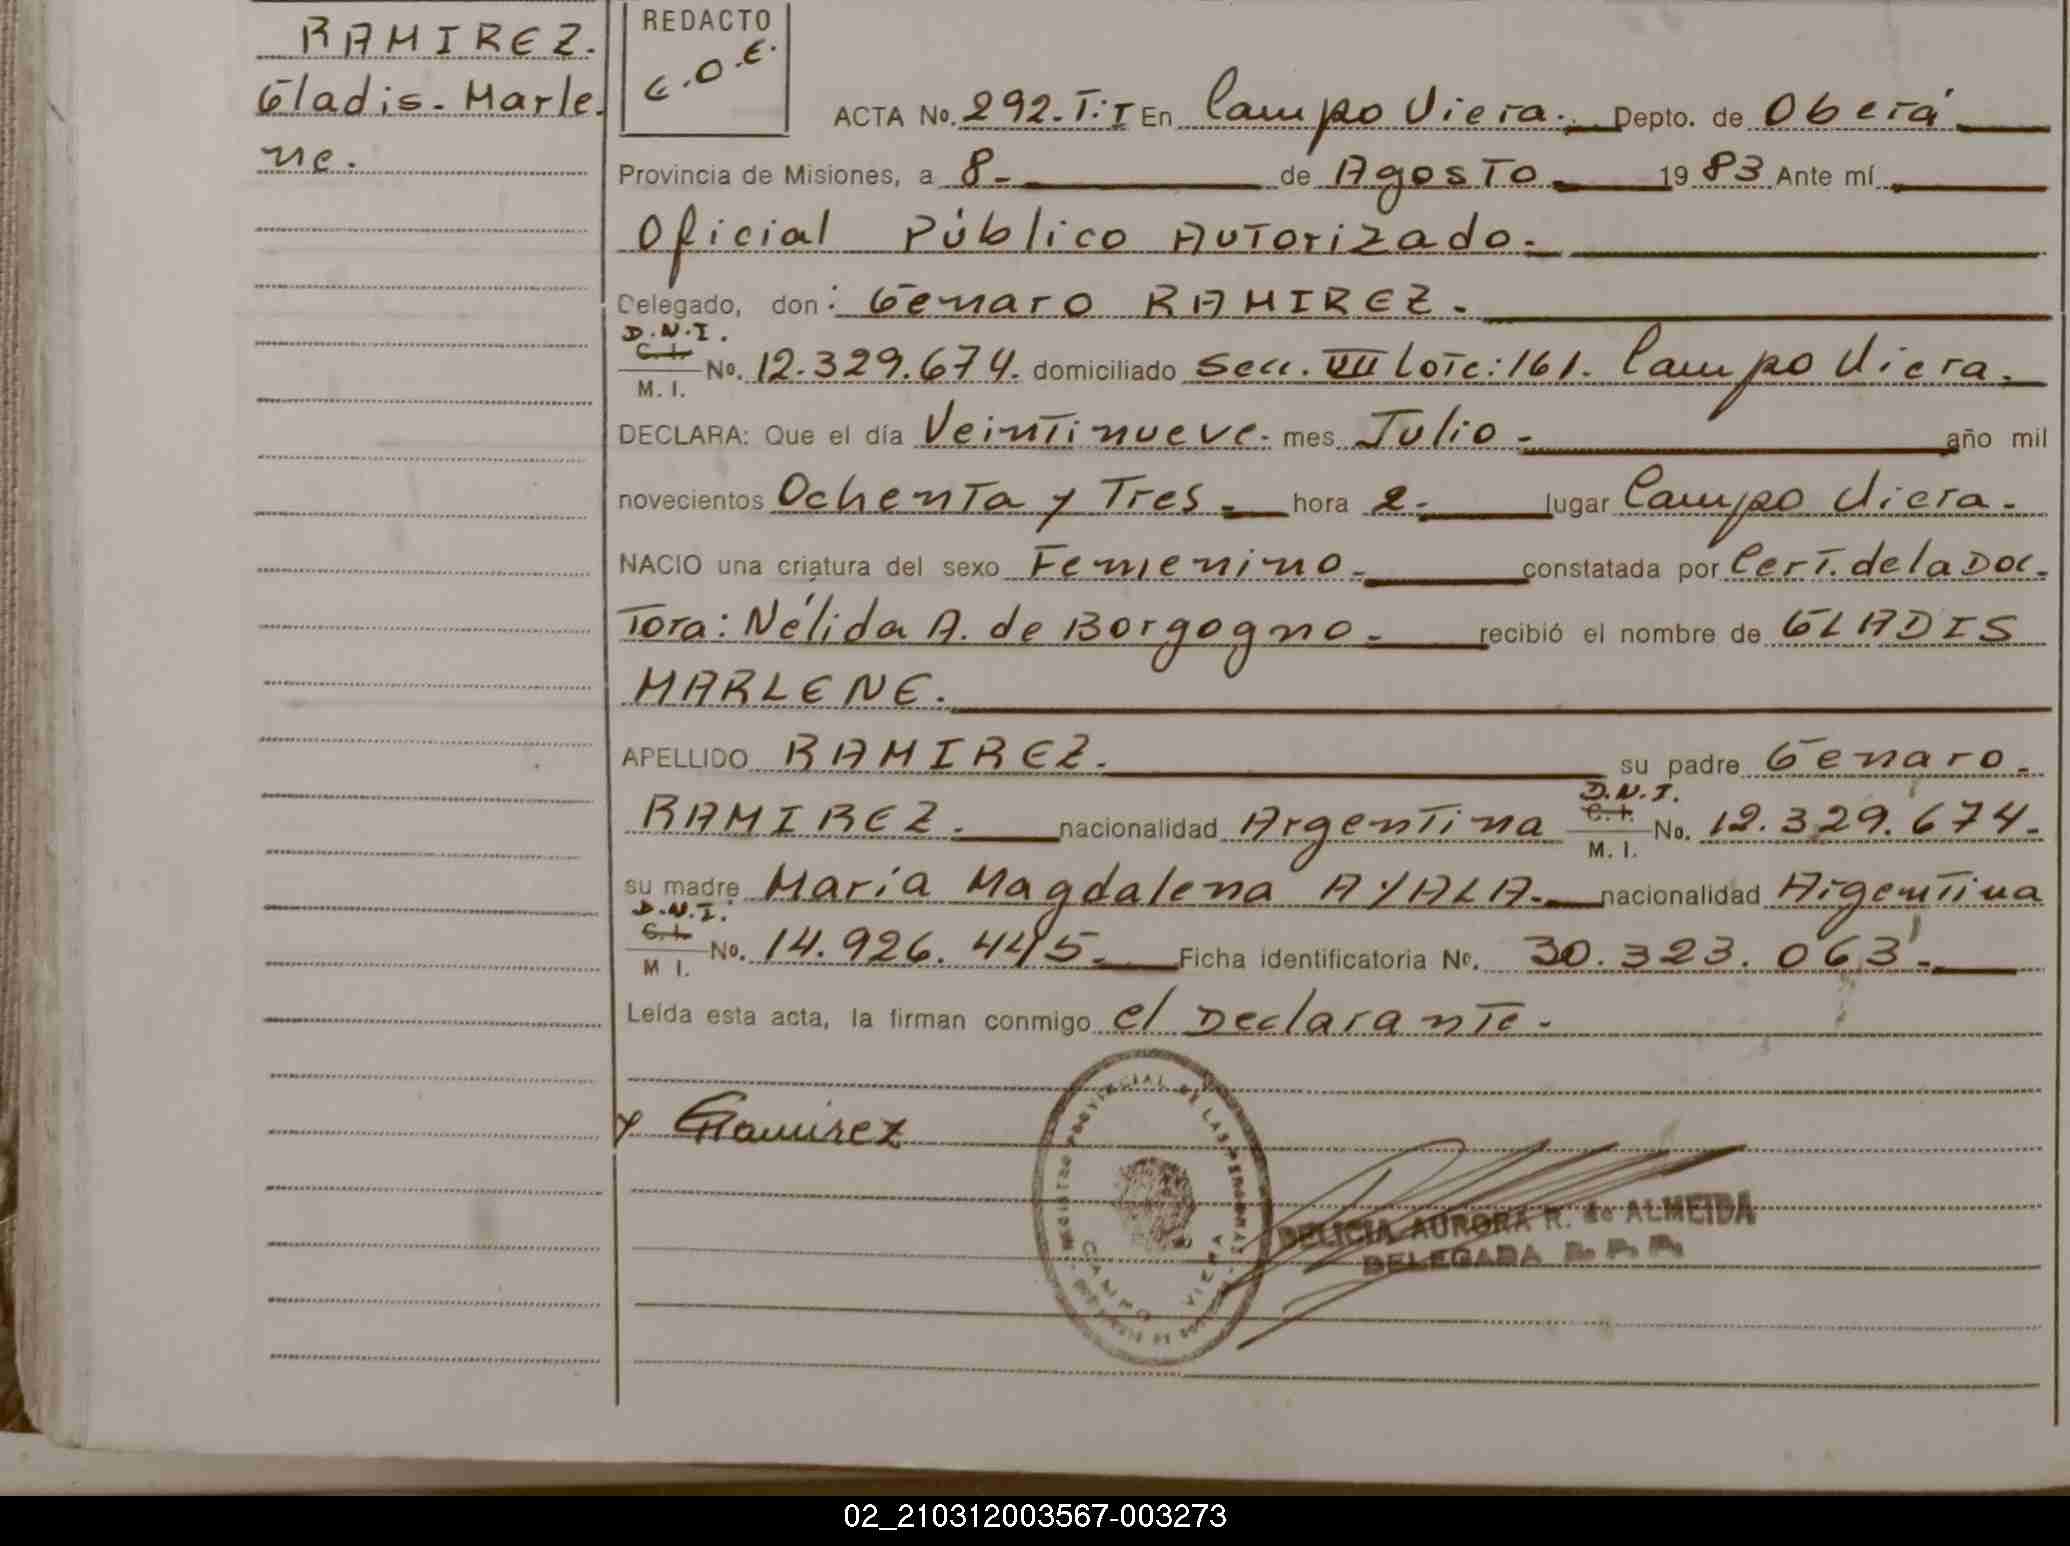 RAMIREZ.
Gladis. Marle
ne.
REDACTO
E.O.E.
ACTA No. 292.T:I En Campo Viera. Depto. de Oberá
Provincia de Misiones, a 8 de Agosto 1983 Ante mí
Oficial Público Autorizado.
Delegado, don: Genaro RAMIREZ.
D.N.I.
C.I.
M. I. No. 12.329.674. domiciliado Secc. VII Lote: 161. Campo Viera.
DECLARA: Que el día Veintinueve. mes Julio año mil
novecientos Ochenta y Tres hora 2. lugar Campo Viera.
NACIO una criatura del sexo Femenino. constatada por Cert. de la Doc.
Tora: Nélida A. de Borgogno. recibió el nombre de GLADIS
MARLENE.
APELLIDO RAMIREZ. su padre Genaro.
RAMIREZ. nacionalidad Argentina D.N.I. C.I. M. I. No. 12.329.674.
su madre María Magdalena AYALA. nacionalidad Argentina
D.N.I.
C.I.
M I. No. 14.926.445. Ficha identificatoria No. 30.323.063.
Leída esta acta, la firman conmigo el Declarante.
x GRamirez
REGISTRO PROVINCIAL DE LAS PERSONAS
CAMPO VIERA
DELICIA AURORA R. de ALMEIDA
DELEGADA R. P. P.
02_210312003567-003273